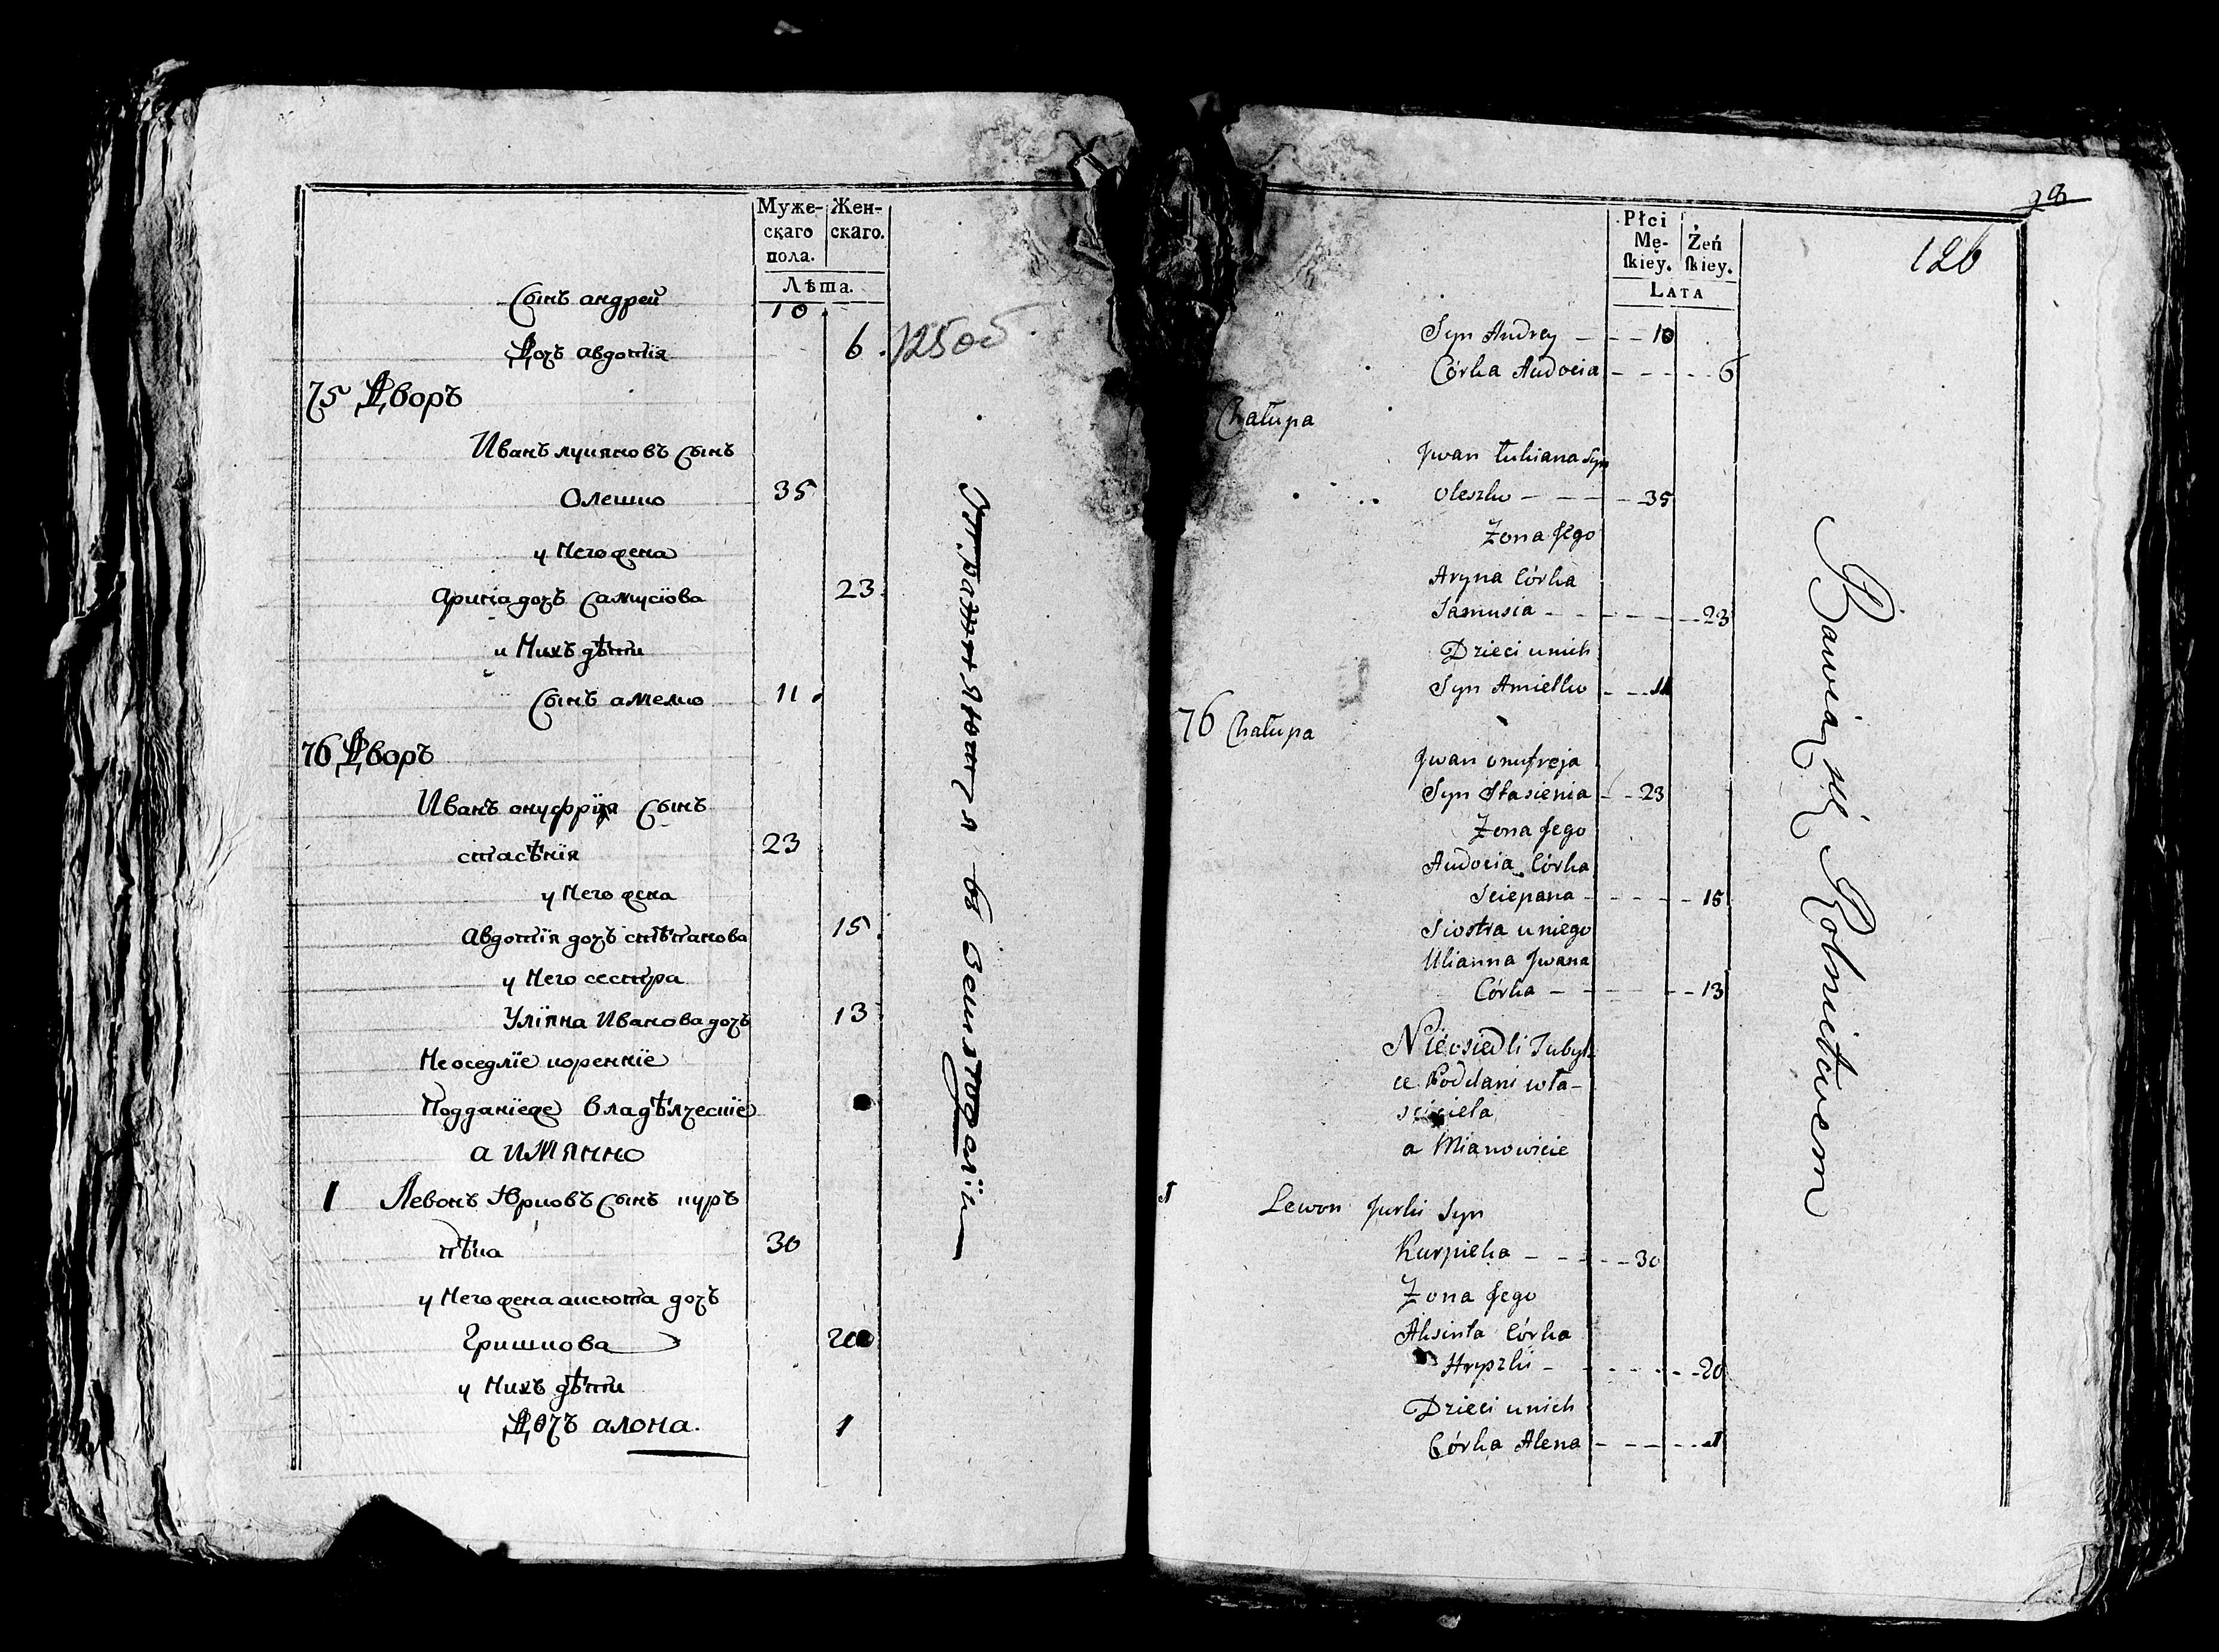 Муже-
скаго
пола.
Жен-
скаго.
Лѣта.
Сынъ андрей 10
Дочь авдотїя 6
125об
75 Дворъ
Иванъ лукяновъ Сынъ
Олешко 35
у Него жена
Аринїа дочь Самусїова 23
и Нихъ дѣти
Сынъ амелко 11
76 Дворъ
Иванъ онуфрїя Сынъ
стасѣнїя 23
у Него жена
Авдотїя дочь стѣпанова 15
у Него сестра
Улїяна Иванова дочь 13
Неоседлїе кореннїе
Подданїеже владѣлческїе
а имянно
1 Левонъ Юрковъ Сынъ кург
пѣка 30
у Него жена аксюта дочь
Гришкова 20
у Нихъ дѣти
Дочь алона. 1
в земледелїи
28
126
Płci
Mę-
skiey.
Żeń
skiey.
LATA
Syn Andrey 10
Córka Audocia 6
Chałupa
Jwan łukiana Syn
Oleszko 35
Żona Jego
Aryna Córka
Samusia 23
Dzieci unich
Syn Amielko 11
76 Chałupa
Jwan onufreja
Syn Stasienia 23
Żona Jego
Audocia Córka
Sciepana 15
Siostra uniego
Ulianna Jwana
Córka 13
Nieosiedli
ce Poddani wła-
sciciela
a Mianowicie
1 Lewon Jurki Syn
Kurpieka 30
Żona Jego
Aksinta Córka
Hryszki 20
Dzieci unich
Córka Alena 1
Bawią się Rolnictwem